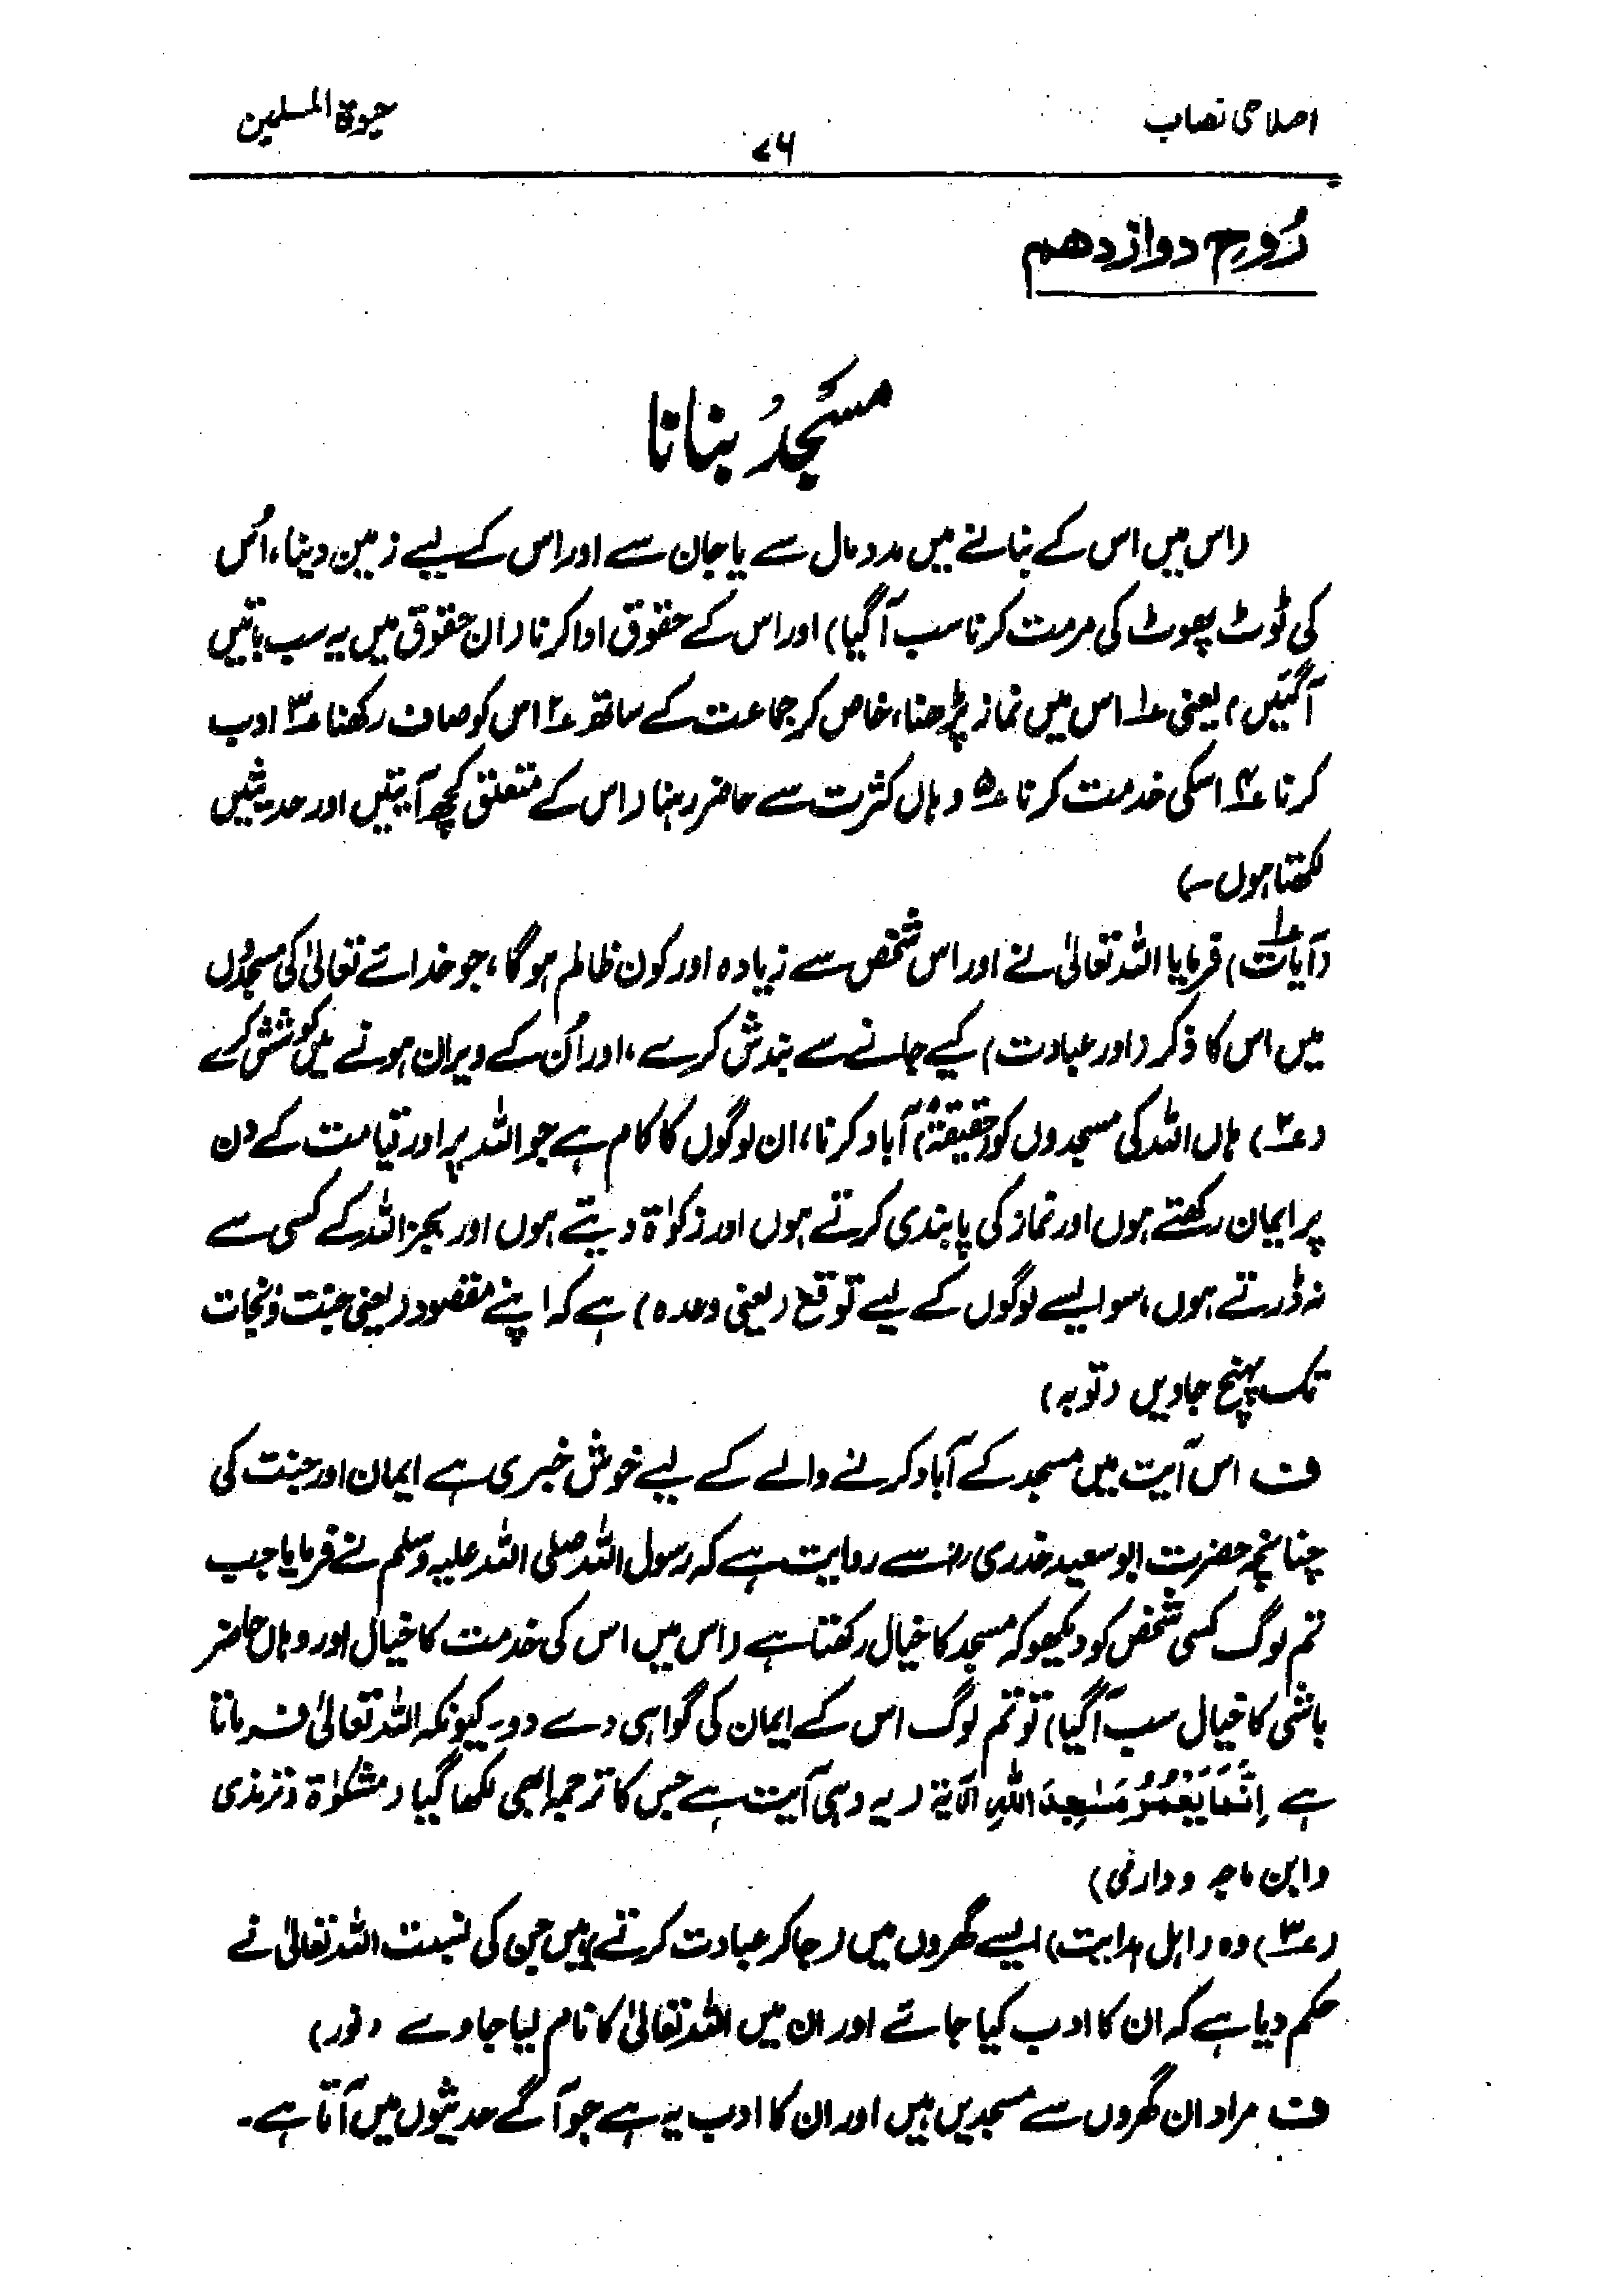 اصلاحی نصاب
۷۶
حیٰوۃ المسلمین
رُوحِ دوازدھم
مسَجدُ بنانا
(اس میں اس کے بنانے میں مدد مال سے یا جان سے اور اس کے لیے زمین دینا، اُس
کی ٹوٹ پھوٹ کی مرمت کرنا سب آگیا) اور اس کے حقوق ادا کرنا (ان حقوق میں یہ سب باتیں
آگئیں) یعنی ؏۱ اس میں نماز پڑھنا، خاص کر جماعت کے ساتھ ؏۲ اس کو صاف رکھنا ؏۳ ادب
کرنا ؏۴ اسکی خدمت کرنا ؏۵ وہاں کثرت سے حاضر رہنا (اس کے متعلق کچھ آیتیں اور حدیثیں
لکھتا ہوں۔)
(آیات؏۱) فرمایا اللہ تعالیٰ نے اور اس شخص سے زیادہ اور کون ظالم ہوگا، جو خدائے تعالیٰ کی مسجدُوں
میں اس کا ذکر (اور عبادت) کیے جانے سے بندش کرے، اور اُن کے ویران ہونے میں کوشش کرے
(؏۲) ہاں اللہ کی مسجدوں کو (حقیقۃً) آباد کرنا، ان لوگوں کا کام ہے جو اللہ پر اور قیامت کے دن
پر ایمان رکھتے ہوں اور نماز کی پابندی کرتے ہوں اور زکوٰۃ دیتے ہوں اور بجز اللہ کے کسی سے
نہ ڈرتے ہوں، سو ایسے لوگوں کے لیے توقع (یعنی وعدہ) ہے کہ اپنے مقصود (یعنی جنت و نجات
تک پہنچ جاویں (توبہ)
ف اس آیت میں مسجد کے آباد کرنے والے کے لیے خوش خبری ہے ایمان اور جنت کی
چنانچہ حضرت ابو سعید خدری رضؓ سے روایت ہے کہ رسول اللہ صلی اللہ علیہ وسلم نے فرمایا جب
تم لوگ کسی شخص کو دیکھو کہ مسجد کا خیال رکھتا ہے (اس میں اس کی خدمت کا خیال اور وہاں حاضر
باشی کا خیال سب آگیا) تو تم لوگ اس کے ایمان کی گواہی دے دو۔ کیونکہ اللہ تعالیٰ فرماتا
ہے اِنَّمَا یَعْمُرُ مَسٰجِدَ اللّٰهِ الآیۃ (یہ وہی آیت ہے جس کا ترجمہ ابھی لکھا گیا (مشکوٰۃ و ترمذی
و ابن ماجہ و دارمی)
(؏۳) وہ (اہل ہدایت) ایسے گھروں میں (جاکر عبادت کرتے) ہیں جن کی نسبت اللہ تعالیٰ نے
حکم دیا ہے کہ ان کا ادب کیا جائے اور ان میں اللہ تعالیٰ کا نام لیا جاوے (نور)
ف مراد ان گھروں سے مسجدیں ہیں اور ان کا ادب یہ ہے جو آگے حدیثوں میں آتا ہے۔